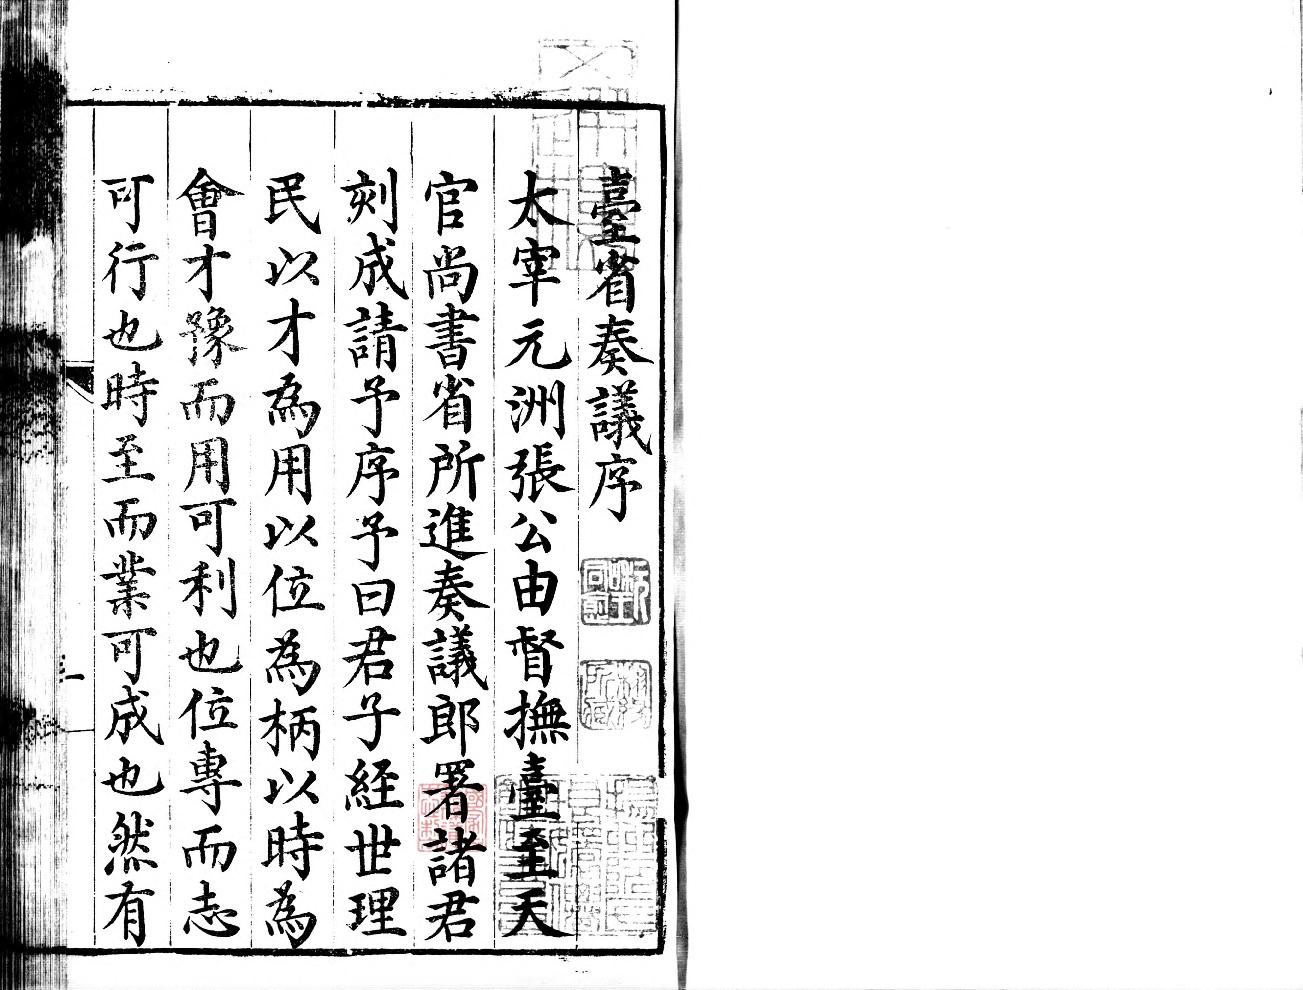 臺省奏議序
太宰元洲張公由督撫臺至天
官尚書省所進奏議郎署諸君
刻成請予序予曰君子経世理
民以才為用以位為柄以時為
會才豫而用可利也位專而志
可行也時至而業可成也然有